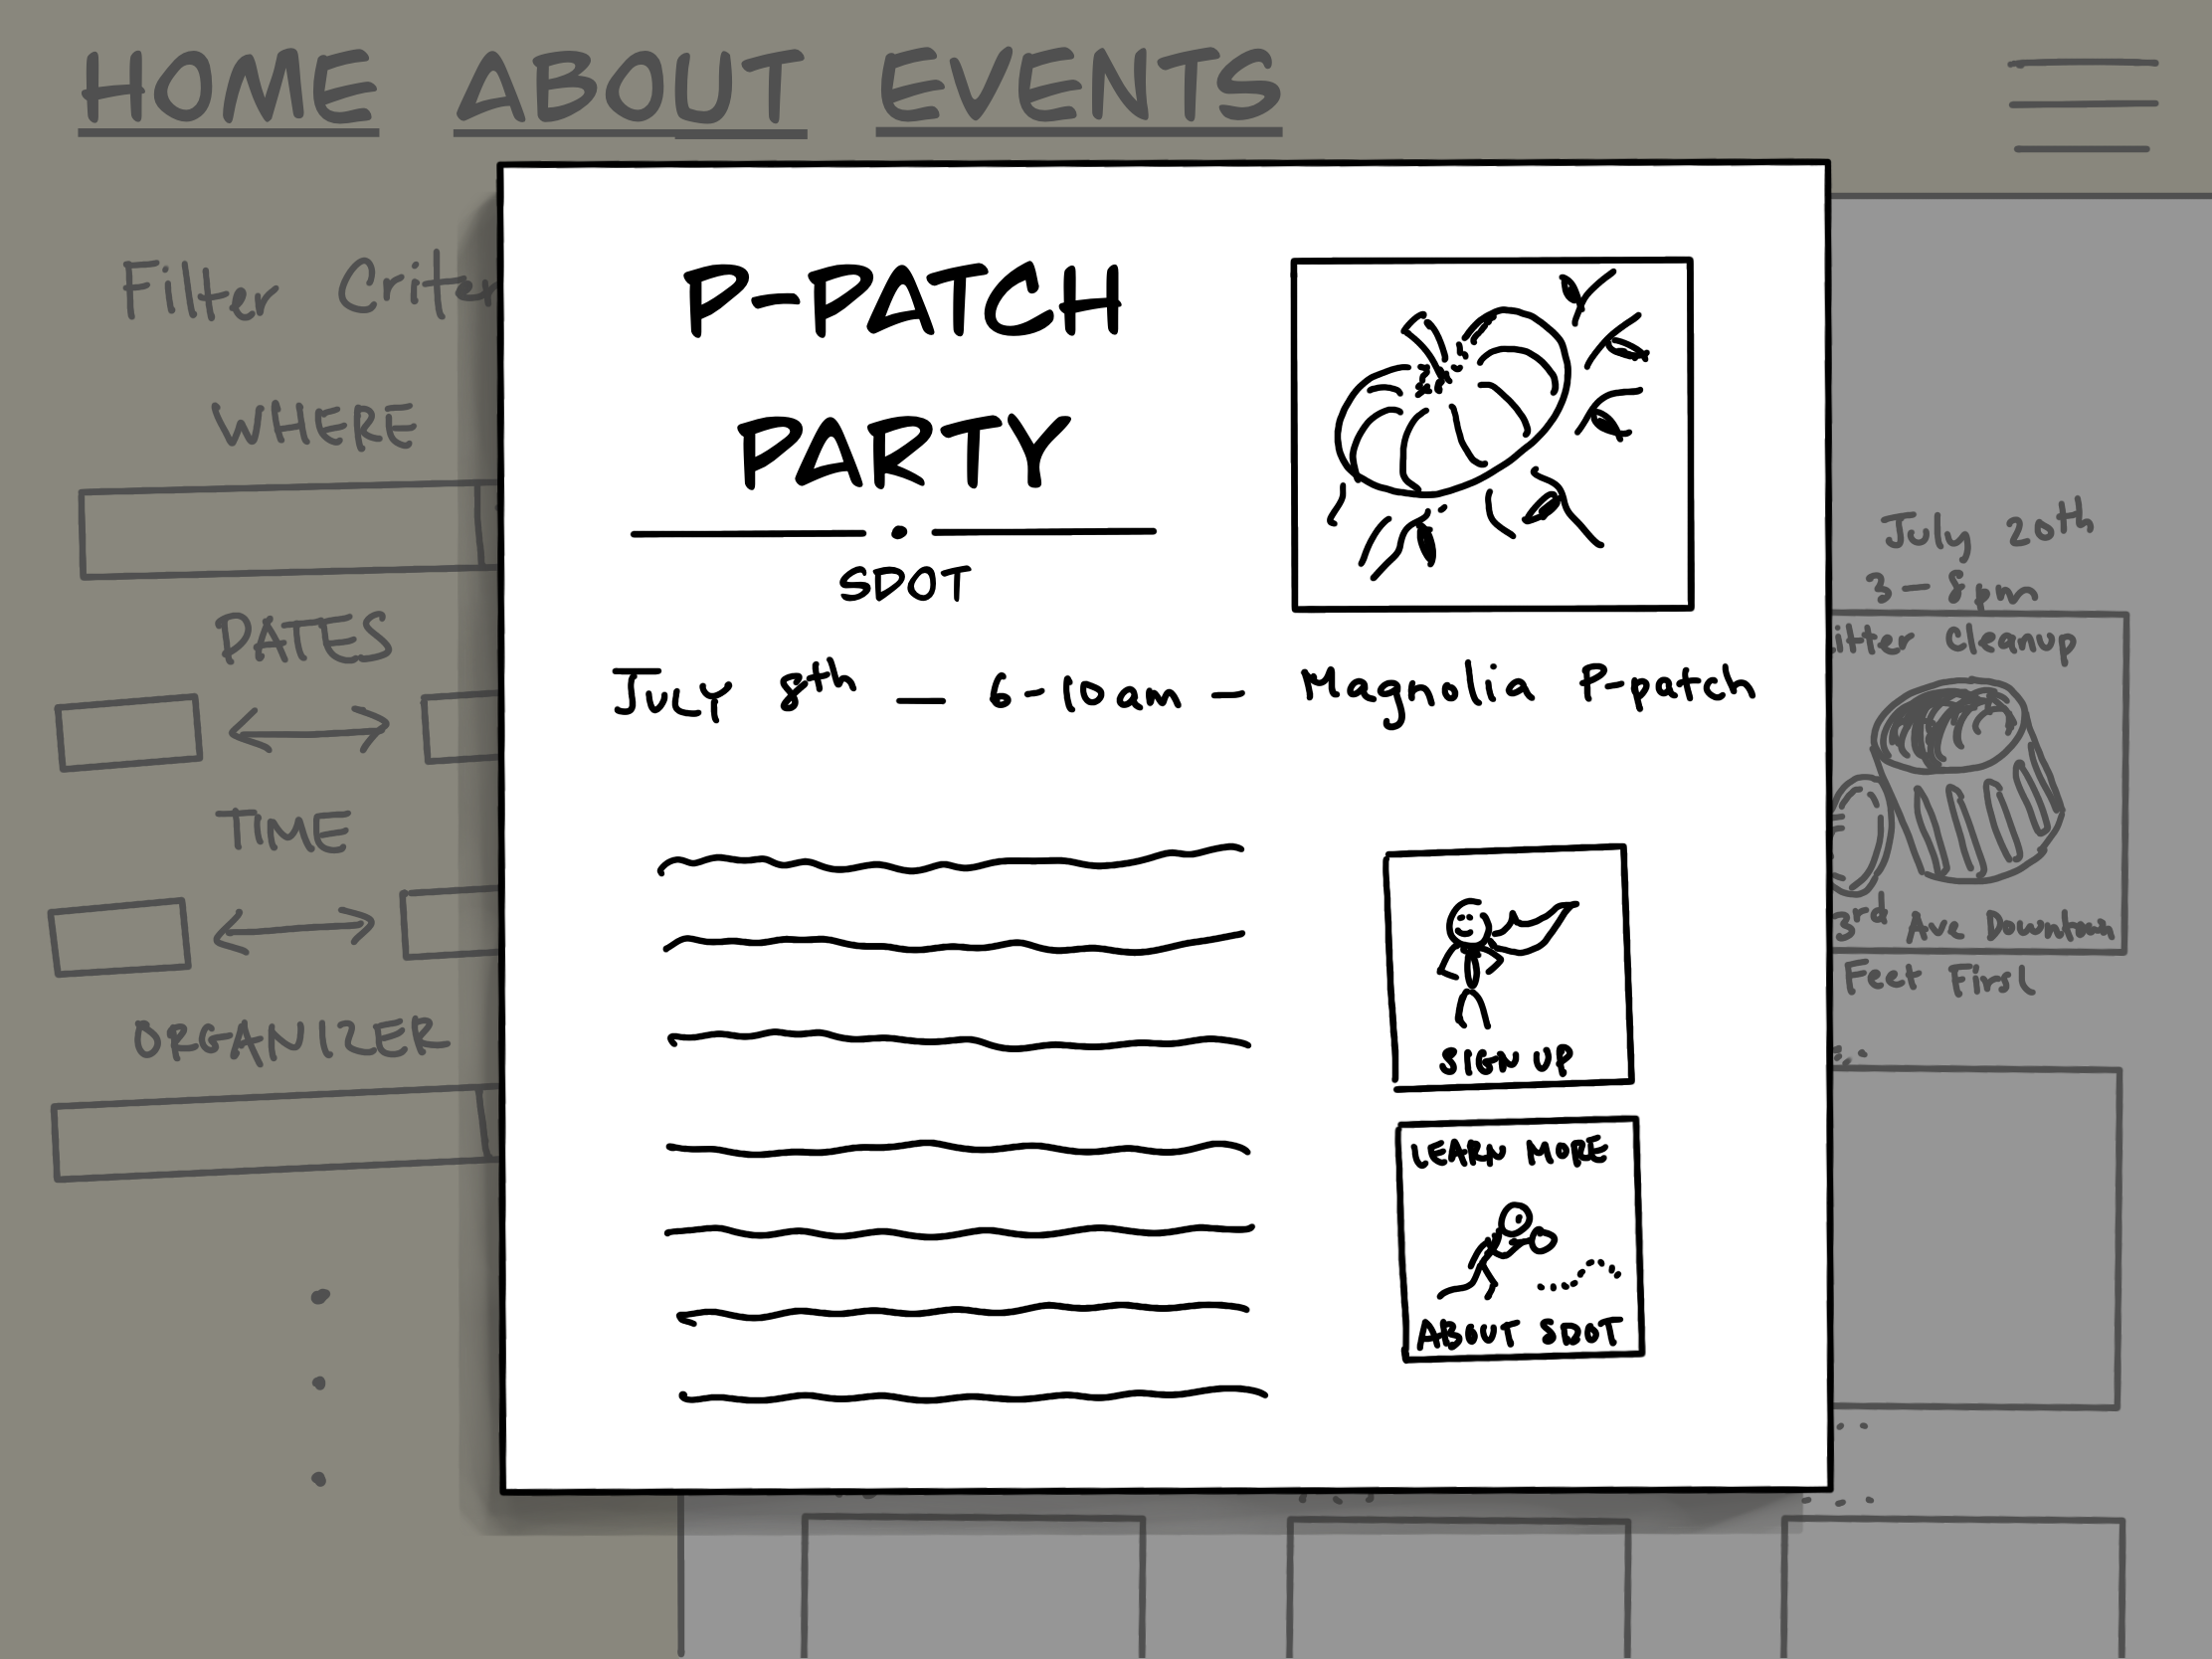 HOME ABOUT EVENTS
Filter Criter
WHERE
DATES
TIME
ORGANIZER
P-PATCH
PARTY
SDOT
July 8th — 6-10am — Magnolia P-patch
SIGN UP
LEARN MORE
ABOUT SDOT
July 20th
3-8pm
itter Cleanup
3rd Ave Downtown
Feet First